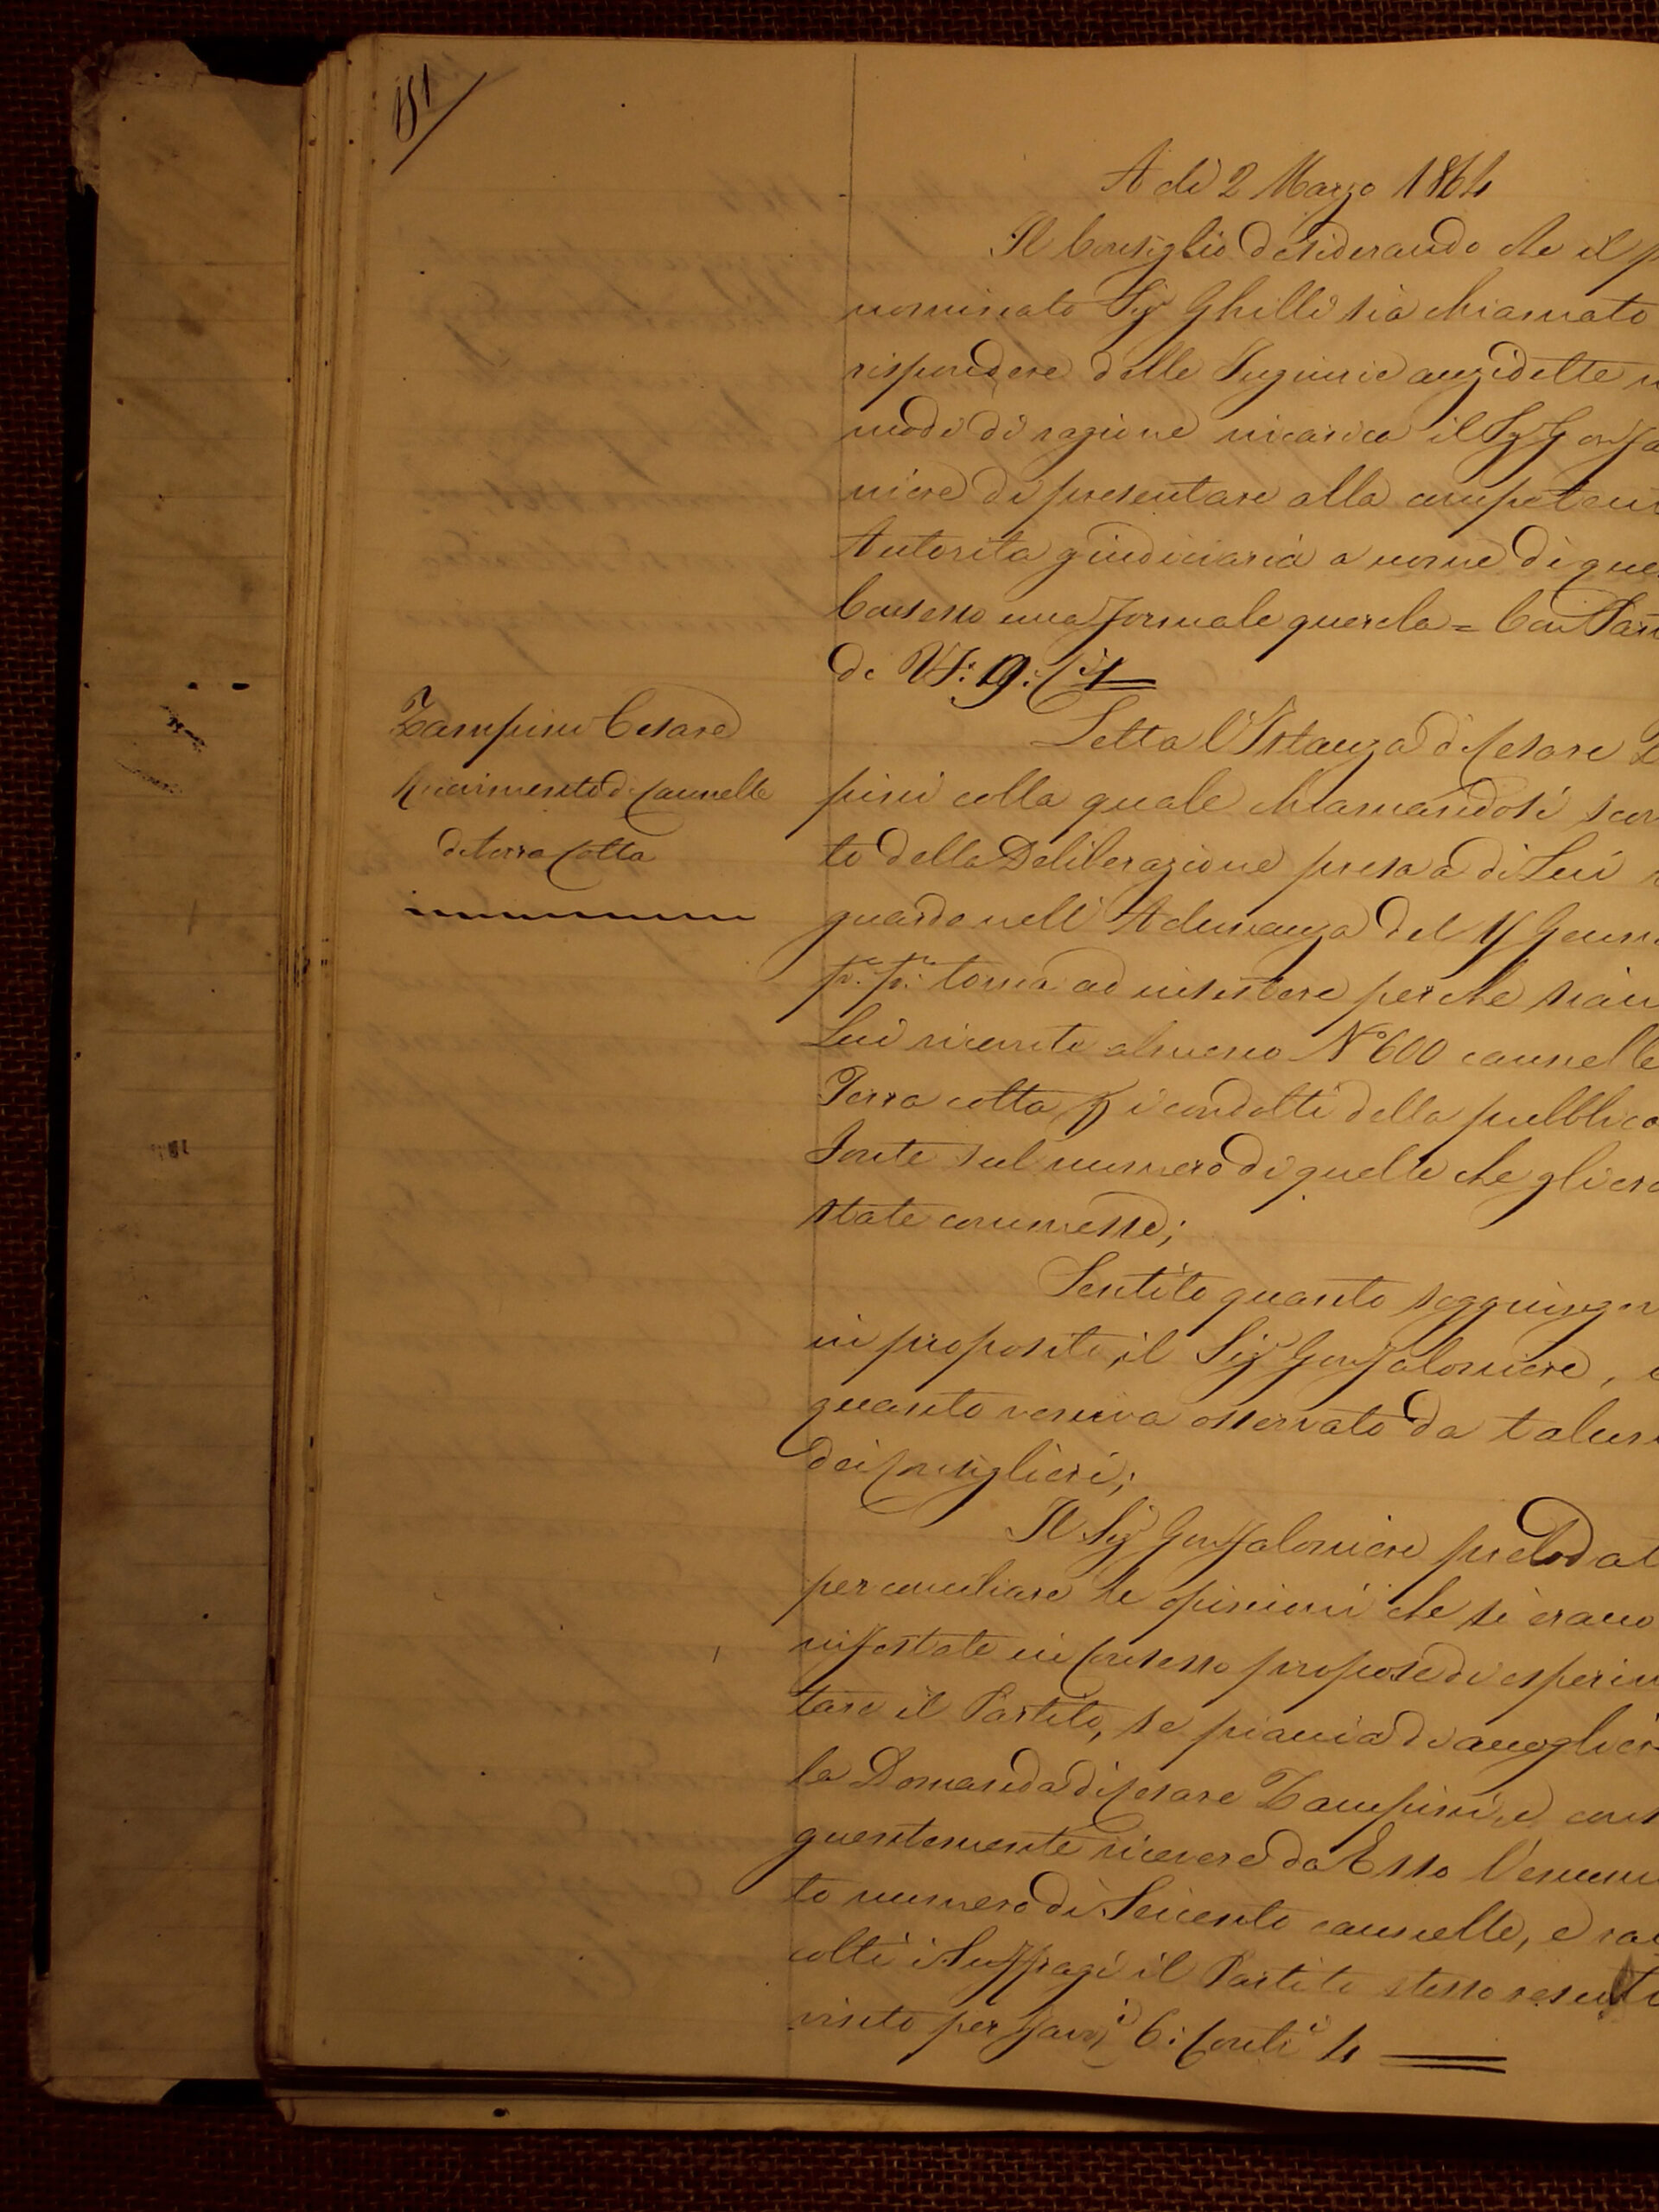 181
A dì 2 Marzo 1864
Il Consiglio desiderando che il p
nominato Sig Ghilli sia chiamato
rispondere delle Ingiurie anzidette
modi di ragione incarica il Sig Gonfa
niere di presentare alla competen
Autorita giudiciaria a nome di que
Consesso una formale querela = Con Parti
di Vi: 9: Ci 1
Zampini Cesare
Ricevimento di Cannelle
di terra Cotta
Letta l'Istanza di Cesare Z
pini colla quale chiamandosi scon
to della Deliberazione presa a di Lui
guardo nell' Adunanza del 4 Genn
pr. pr. torna ad insistere perche sian
Lui ricevute almeno N° 600 cannelle
Terra cotta p i condotti della pubblica
Fonte sul numero di quelle che gli era
state commesse;
Sentito quanto soggiunger
in proposito, il Sig Gonfaloniere,
quanto veniva osservato da talun
dei Consiglieri;
Il Sig Gonfaloniere prelodat
per conciliare le opinioni che si erano
nifestate in Consesso propose di esperim
tare il Partito, se piaccia di accoglier
la Domanda di Cesare Zampini, e cons
guentemente ricevere da Esso l'enunci
to numero di Seicento cannelle, e rac
colti i Suffragi il Partito stesso resultò
vinto per favi 6: Conti 4